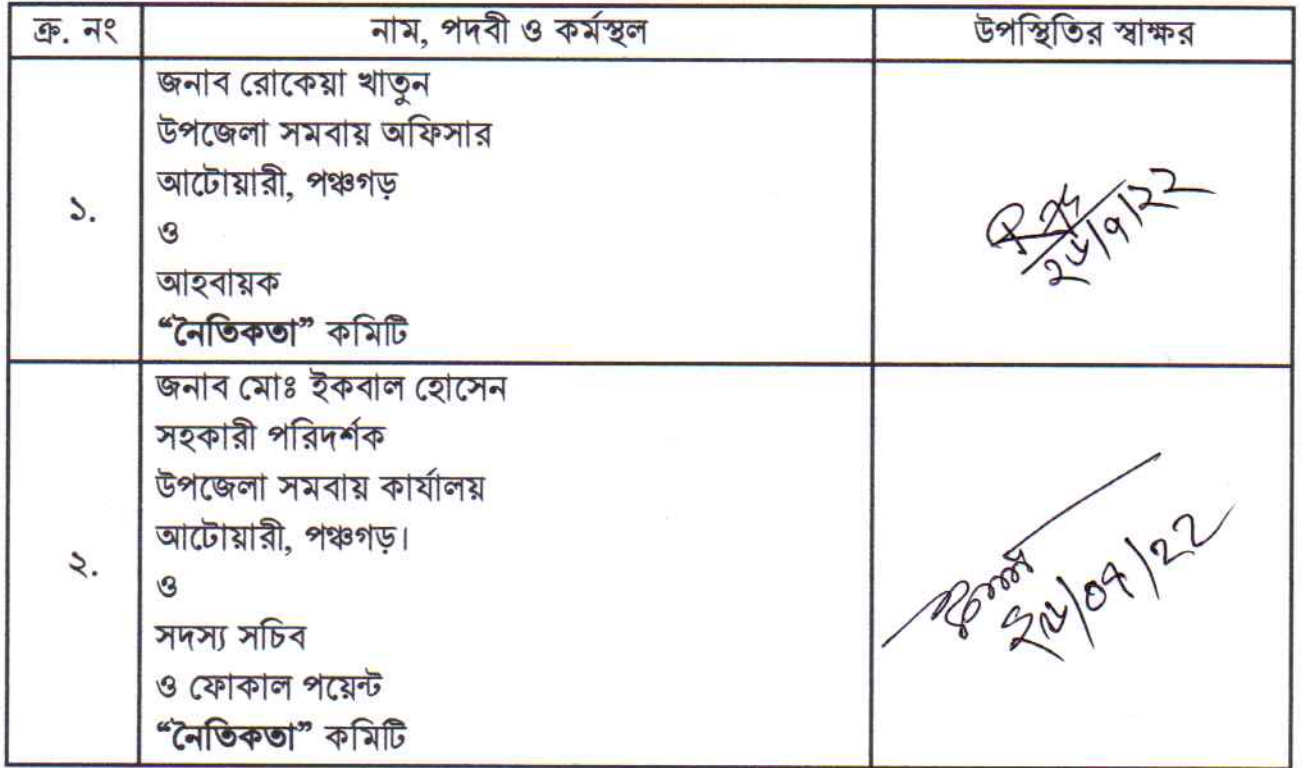 ক্র. নং নাম, পদবী ও কর্মস্থল উপস্থিতির স্বাক্ষর
জনাব রোকেয়া খাতুন
উপজেলা সমবায় অফিসার
আটোয়ারী, পঞ্চগড়
১.
ও
আহবায়ক
“নৈতিকতা” কমিটি
জনাব মোঃ ইকবাল হোসেন
সহকারী পরিদর্শক
উপজেলা সমবায় কার্যালয়
আটোয়ারী, পঞ্চগড়।
২.
ও
সদস্য সচিব
ও ফোকাল পয়েন্ট
“নৈতিকতা” কমিটি